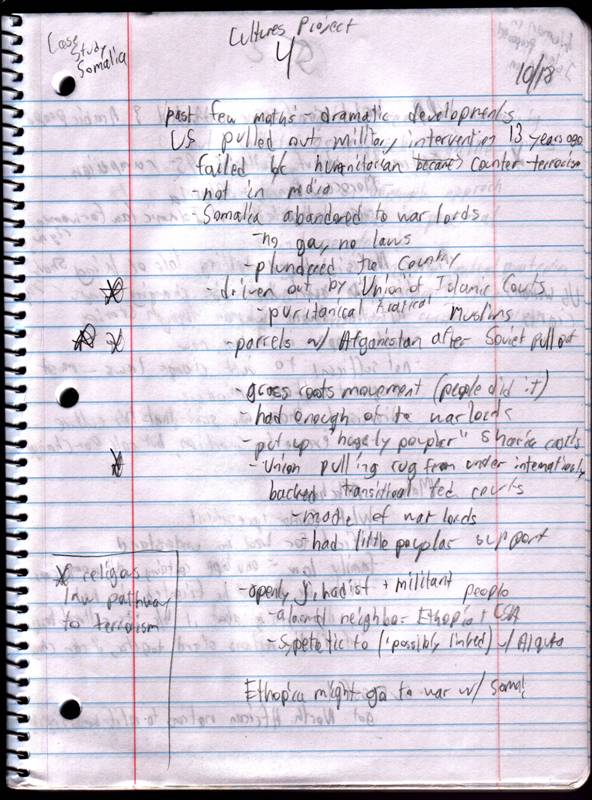 Case
Study
Somalia
Cultures Project
4
10/18
past few moths - dramatic developments
US pulled out military intervention 13 years ago
failed b/c humanitarian became counter-terrorism
- not in media
- Somalia abandoned to war lords
- no gov, no laws
- plundered the country
- driven out by Union of Islamic Courts
- puritanical radical Muslims
- parcels w/ Afganistan after Soviet pull out
- grass roots movement (people did it)
- had enough of the warlords
- put up "hugely pouplar" Sharia courts
- Union pulling rug from under internationaly
backed transitional fed courts
- made of war lords
- had little pouplar support
- openly jihadist + militant people
- alarmed neighbor Ethopia + USA
- to (possibly linked) w/ Alquta
Ethopica might go to war w/ Somal
religous
law pathway
to terrorism